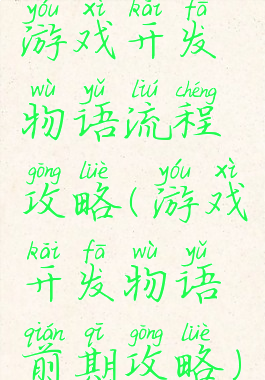 yóu xì kāi fā
游戏开发
wù yǔ liú chéng
物语流程
gōng lüè yóu xì
攻略(游戏
kāi fā wù yǔ
开发物语
qián qī gōng lüè
前期攻略)